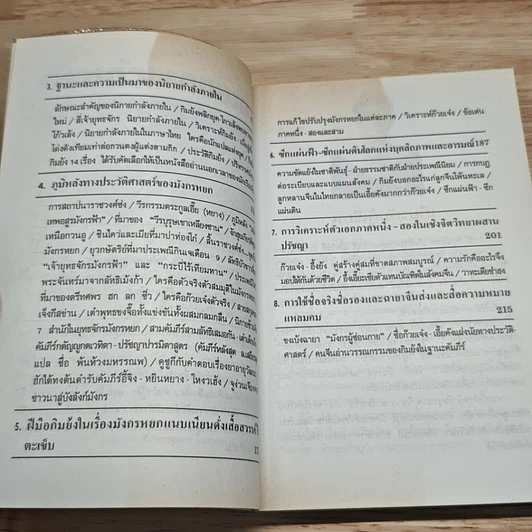 3. ฐานะและความเป็นมาของนิยายกำลังภายใน
ลักษณะสำคัญของนิยายกำลังภายใน / กิมย้งพลิกยุค โกวเล้งพบทาง
ใหม่ / สี่เจ้ายุทธจักร นิยายกำลังภายใน / วิเคราะห์กิมย้ง
โก้วเล้ง / นิยายกำลังภายในในภาษาไทย ใครคือนักแปลแห่งยุค
โค่งตั้งเทียมเท่าก่อกวนตงผู้แต่งสามก๊ก / ประวัติกิมย้ง /
กิมย้ง 14 เรื่อง ได้รับคัดเลือกให้เป็นหนังสืออ่านนอกเวลาของ
4. ภูมิหลังทางประวัติศาสตร์ของมังกรหยก
การสถาปนาราชวงศ์ซ่ง / วีรกรรมตระกูลเอี้ย (หยาง) / ภูมิหลัง
เทพอสูรมังกรฟ้า / ที่มาของ "วีรบุรุษเขาเหลียงซาน"
เหนือกวนอู / ชินไคว่และเมียที่มาปาท่องโก๋ / สิ้นราชวงศ์ซ่ง
มังกรหยก / ยวกษัตริย์ที่มาประเพณีกินเจเดือน 9 /
"เจ้ายุทธจักรมังกรฟ้า" และ "กระบี่ไร้เทียมทาน"
พระจันทร์มาจากลัทธิเม้งก้า / ใครคือตัวจริงตัวสมมุติในมังกรหยก
ที่มาของตรีทศพร ฮก ลก ซิ่ว / ใครคือก๊วยเจ๋งตัวจริง
เจ็งกีสข่าน / เต๋าพุทธขงจื๊อทั้งแข่งขันทั้งผสมกลมกลืน
7 สำนักในยุทธจักรมังกรหยก / สามคัมภีร์สามลัทธิเสมอกัน
คัมภีร์กคัญญูกตเวทิตา - ปรัชญาปารมิตาสูตร
แปล ชื่อ พ้นห้วงมหรรณพ) / คูชูกีกับคำตอบเรื่องยาอายุวัฒนะ
ฮักโต้หงต้นตำรับคัมภีร์อี้จิง - หยินหยาง - ไหงวเฮ้ง
ชาวนาสู่บังลังก์มังกร
5. ฝีมือกิมย้งในเรื่องมังกรหยกแนบเนียนดั่งเสื้อสวรรค์ไร้
ตะเข็บ
การแก้ไขปรับปรุงมังกรหยกในแต่ละภาค / วิเคราะห์ก๊วยเจ๋ง / ข้อเด่น
ภาคหนึ่ง - สองและสาม
6. ซีกแผ่นฟ้า-ซีกแผ่นดินโลกแห่งบุคลิกภาพและอารมณ์187
ความขัดแย้งในชาติพันธุ์ - ฝ่ายธรรมชาติกับฝ่ายประเพณีนิยม / การกบฏ
ต่อระเบียบและแบบแผนสังคม / กิมย้งบอกอะไรแก่ลูกจีนโพ้นทะเล /
ลูกหลานจีนในไทยกลายเป็นเอี้ยคังมากกว่าก๊วยเจ๋ง / ซีกแผ่นฟ้า - ซีก
แผ่นดิน
7. การวิเคราะห์ตัวเอกภาคหนึ่ง - สองในเชิงจิตวิทยาผสาน
ปรัชญา 201
ก๊วยเจ๋ง - อึ้งย้ง คู่สร้างคู่สมที่ขาดสภาพสมบูรณ์ / ความรักคืออะไรจึง
มอบให้กันด้วยชีวิต / อึ้งเอี๊ยะซือตัวแทนบัณฑิตในสังคมจีน / วาทะเตียซำฮง
8. การใช้ชื่อจริงชื่อรองและฉายาจีนส่งและสื่อความหมาย
แหลมคม 215
ขงเบ้งฉายา "มังกรผู้ซ่อนกาย" / ชื่อก๊วยเจ๋ง - เอี้ยคังแฝงนัยทางประวัติ-
ศาสตร์ / คนจีนอ่านวรรณกรรมของกิมย้งในฐานะคัมภีร์